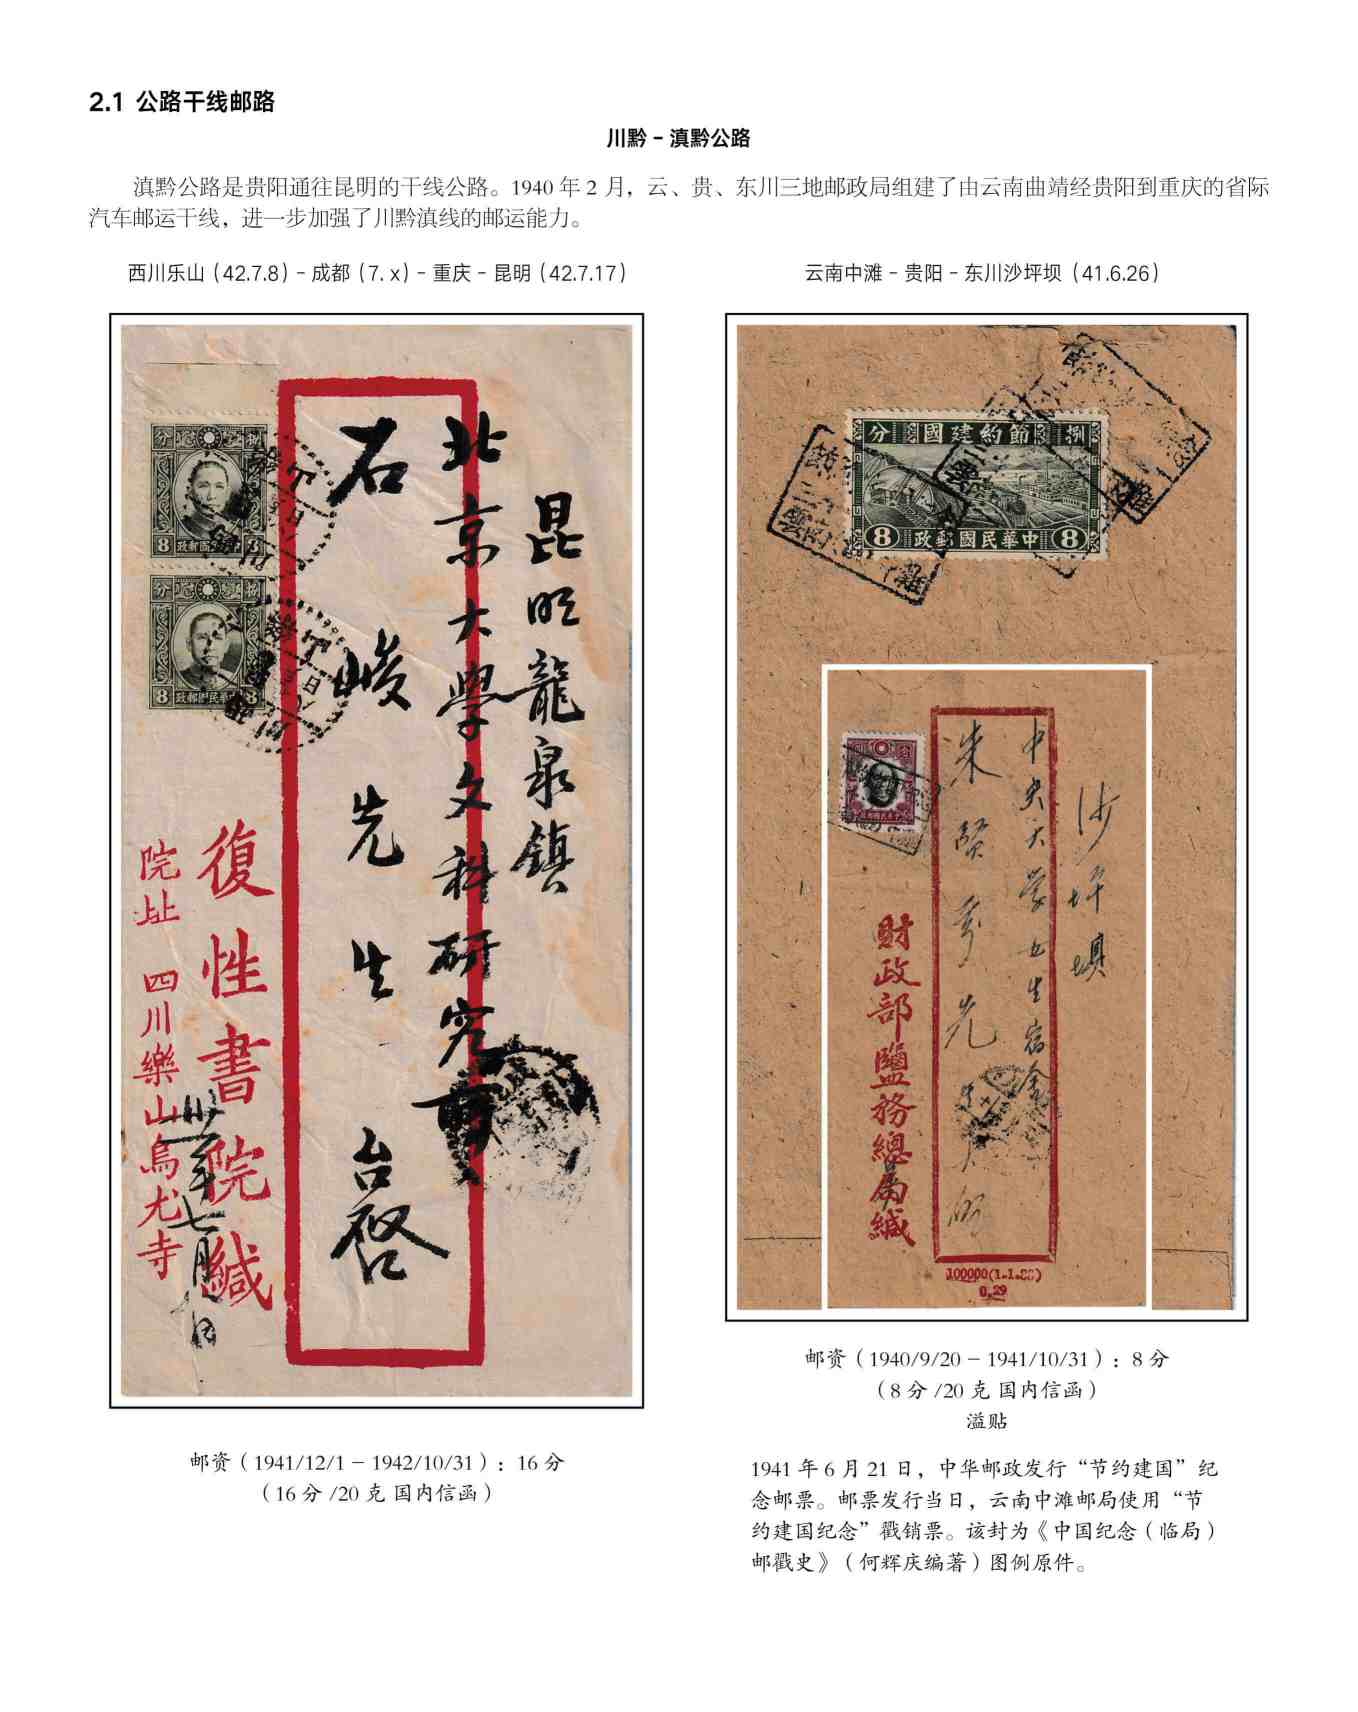 2.1 公路干线邮路
川黔 – 滇黔公路
滇黔公路是贵阳通往昆明的干线公路。1940 年 2 月，云、贵、东川三地邮政局组建了由云南曲靖经贵阳到重庆的省际
汽车邮运干线，进一步加强了川黔滇线的邮运能力。
西川乐山（42.7.8）– 成都（7. x）– 重庆 – 昆明（42.7.17）
昆明龍泉鎮
北京大學文科研究所
石峻先生 台啓
復性書院緘
院址 四川樂山烏尤寺
卅一年七月八日
8
8
云南中滩 – 贵阳 – 东川沙坪坝（41.6.26）
分 節約建國 捌
8 中華民國郵政 8
沙坪壩
中央大学
朱賢 先
財政部鹽務總局緘
0.29
邮资（1941/12/1 – 1942/10/31）: 16 分
（16 分 /20 克 国内信函）
邮资（1940/9/20 – 1941/10/31）: 8 分
（8 分 /20 克 国内信函）
溢贴
1941 年 6 月 21 日，中华邮政发行“节约建国”纪
念邮票。邮票发行当日，云南中滩邮局使用“节
约建国纪念”戳销票。该封为《中国纪念（临局）
邮戳史》（何辉庆编著）图例原件。